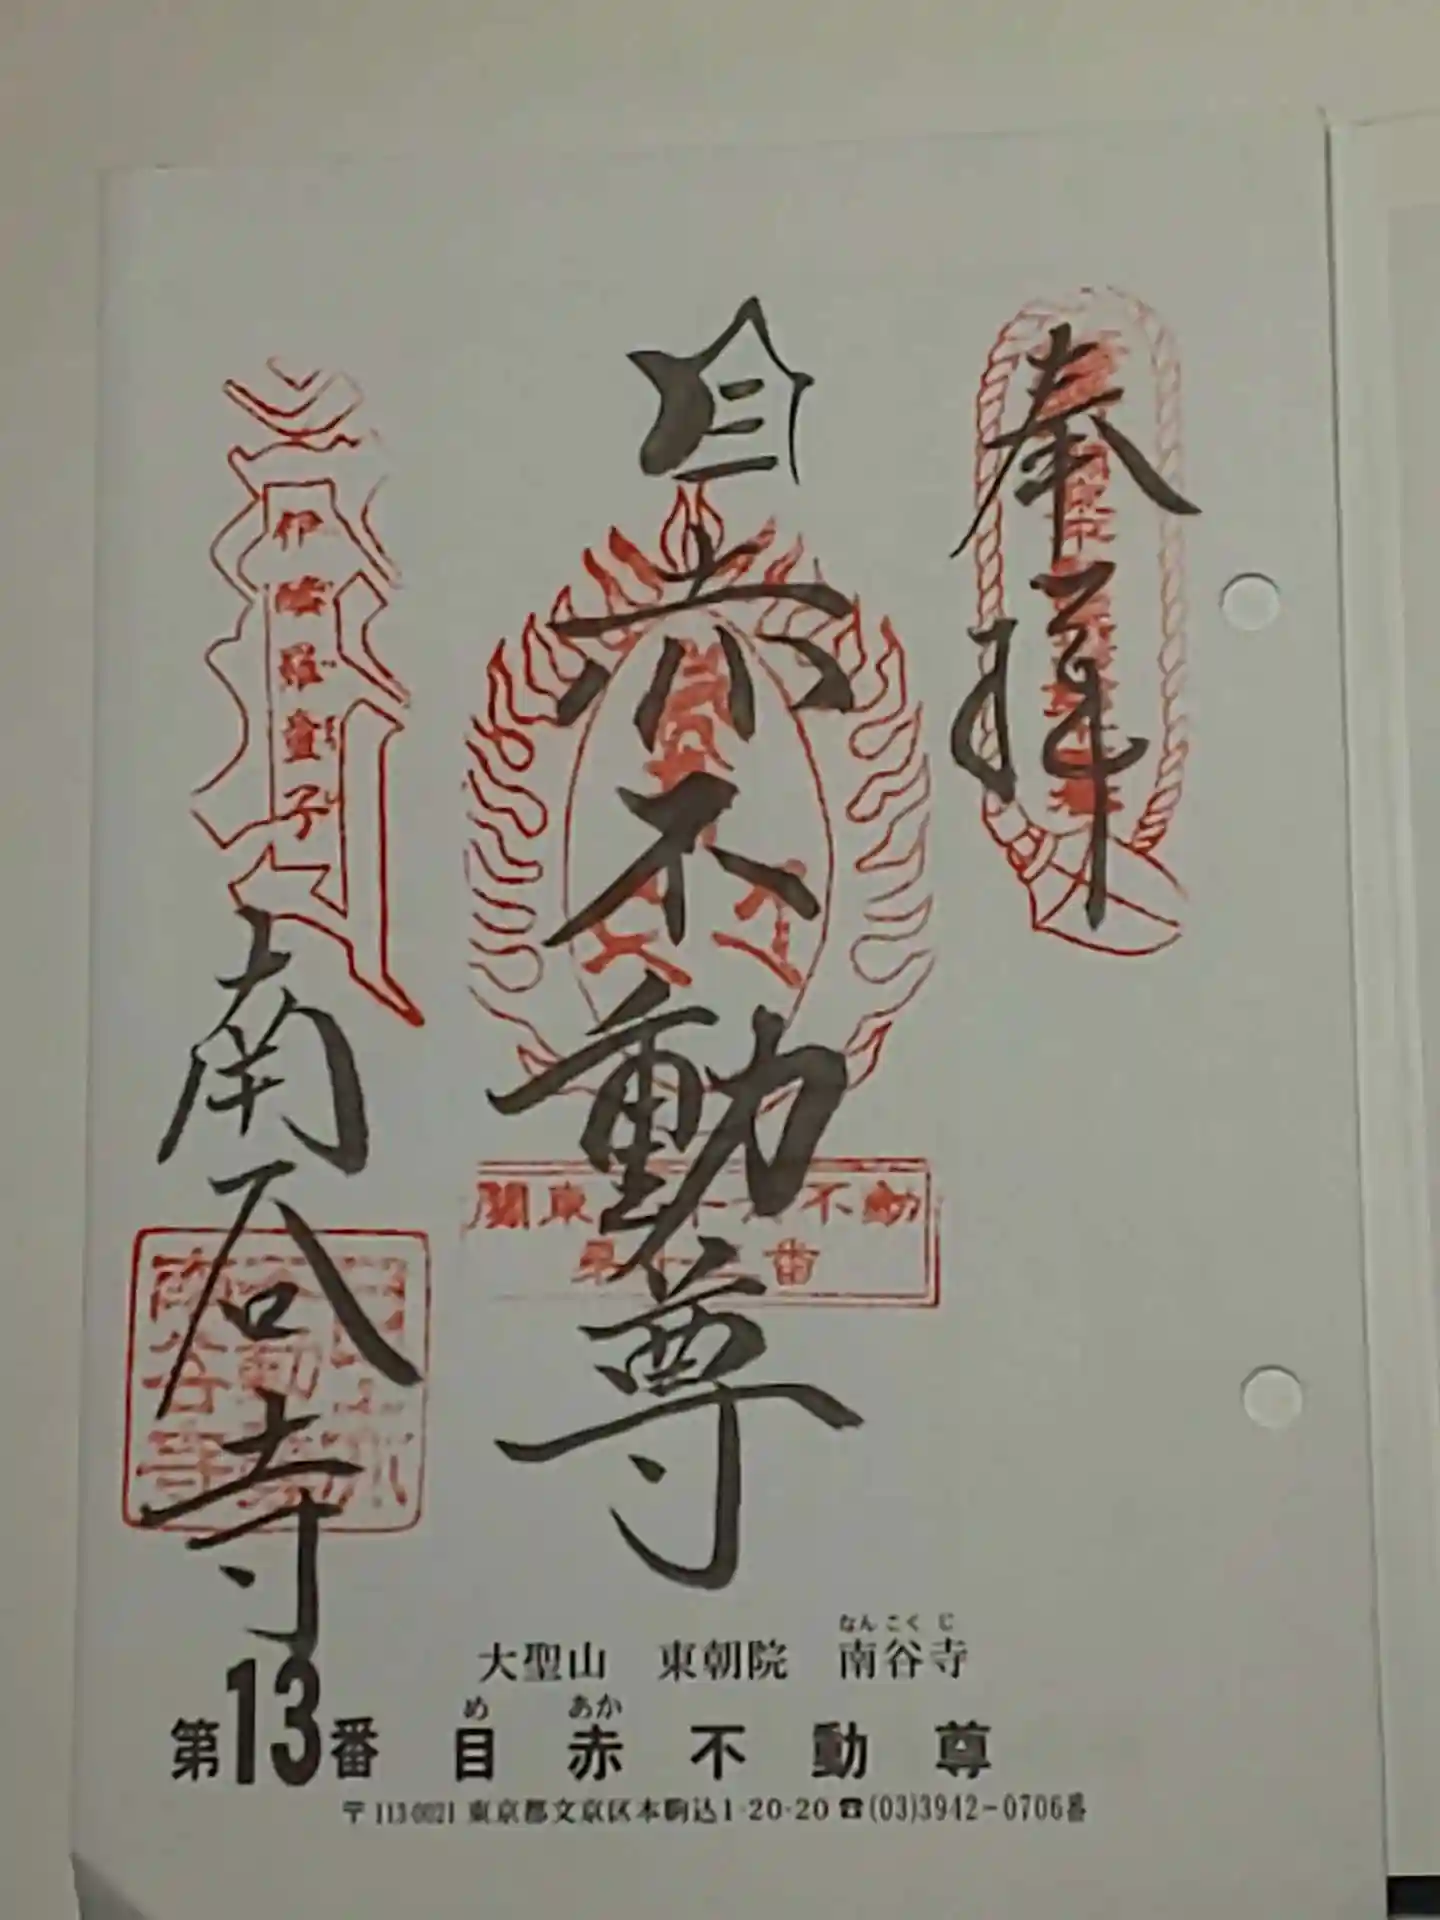 奉拝
目赤不動尊
関東三十六不動
第十三番
伊醯羅童子
南谷寺
なんこくじ
大聖山 東朝院 南谷寺
め あか
第13番 目赤不動尊
〒113-0021 東京都文京区本駒込1-20-20 ☎(03)3942-0706番